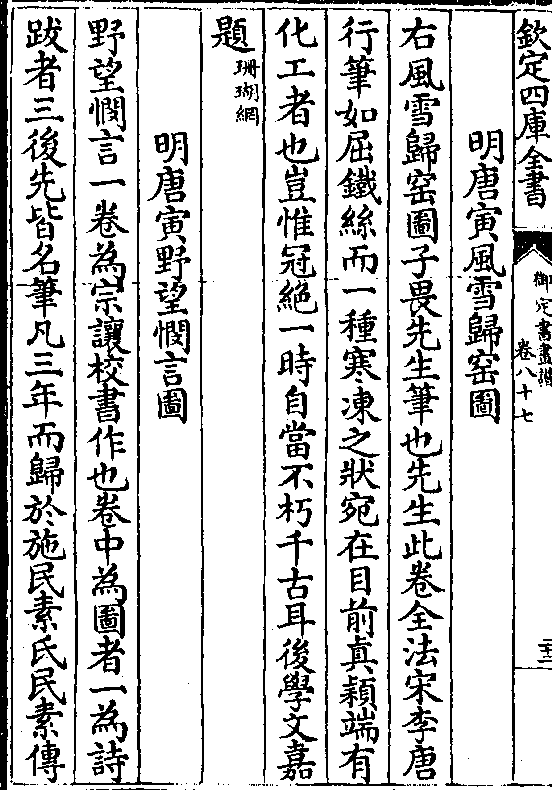 欽定四庫全書
御定書畫譜
卷八十七
明唐寅風雪歸窑圖
右風雪歸窑圖子畏先生筆也先生此卷全法宋李唐
行筆如屈鐵絲而一種寒凍之狀宛在目前真穎端有
化工者也豈惟冠絶一時自當不朽千古耳後學文嘉
題珊瑚網
明唐寅野望憫言圖
野望憫言一卷為宗讓校書作也卷中為圖者一為詩
跋者三後先皆名筆凡三年而歸於施民素氏民素傳